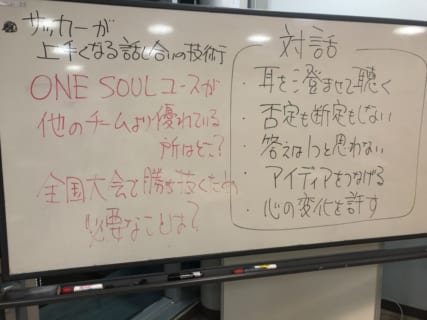 サッカーが
上手くなる話し合いの技術
ONE SOULユースが
他のチームより優れている
所はどこ?
全国大会で勝ち抜くため
必要なことは?
対話
・耳を澄ませて聴く
・否定も断定もしない
・答えは1つと思わない
・アイディアをつなげる
・心の変化を許す